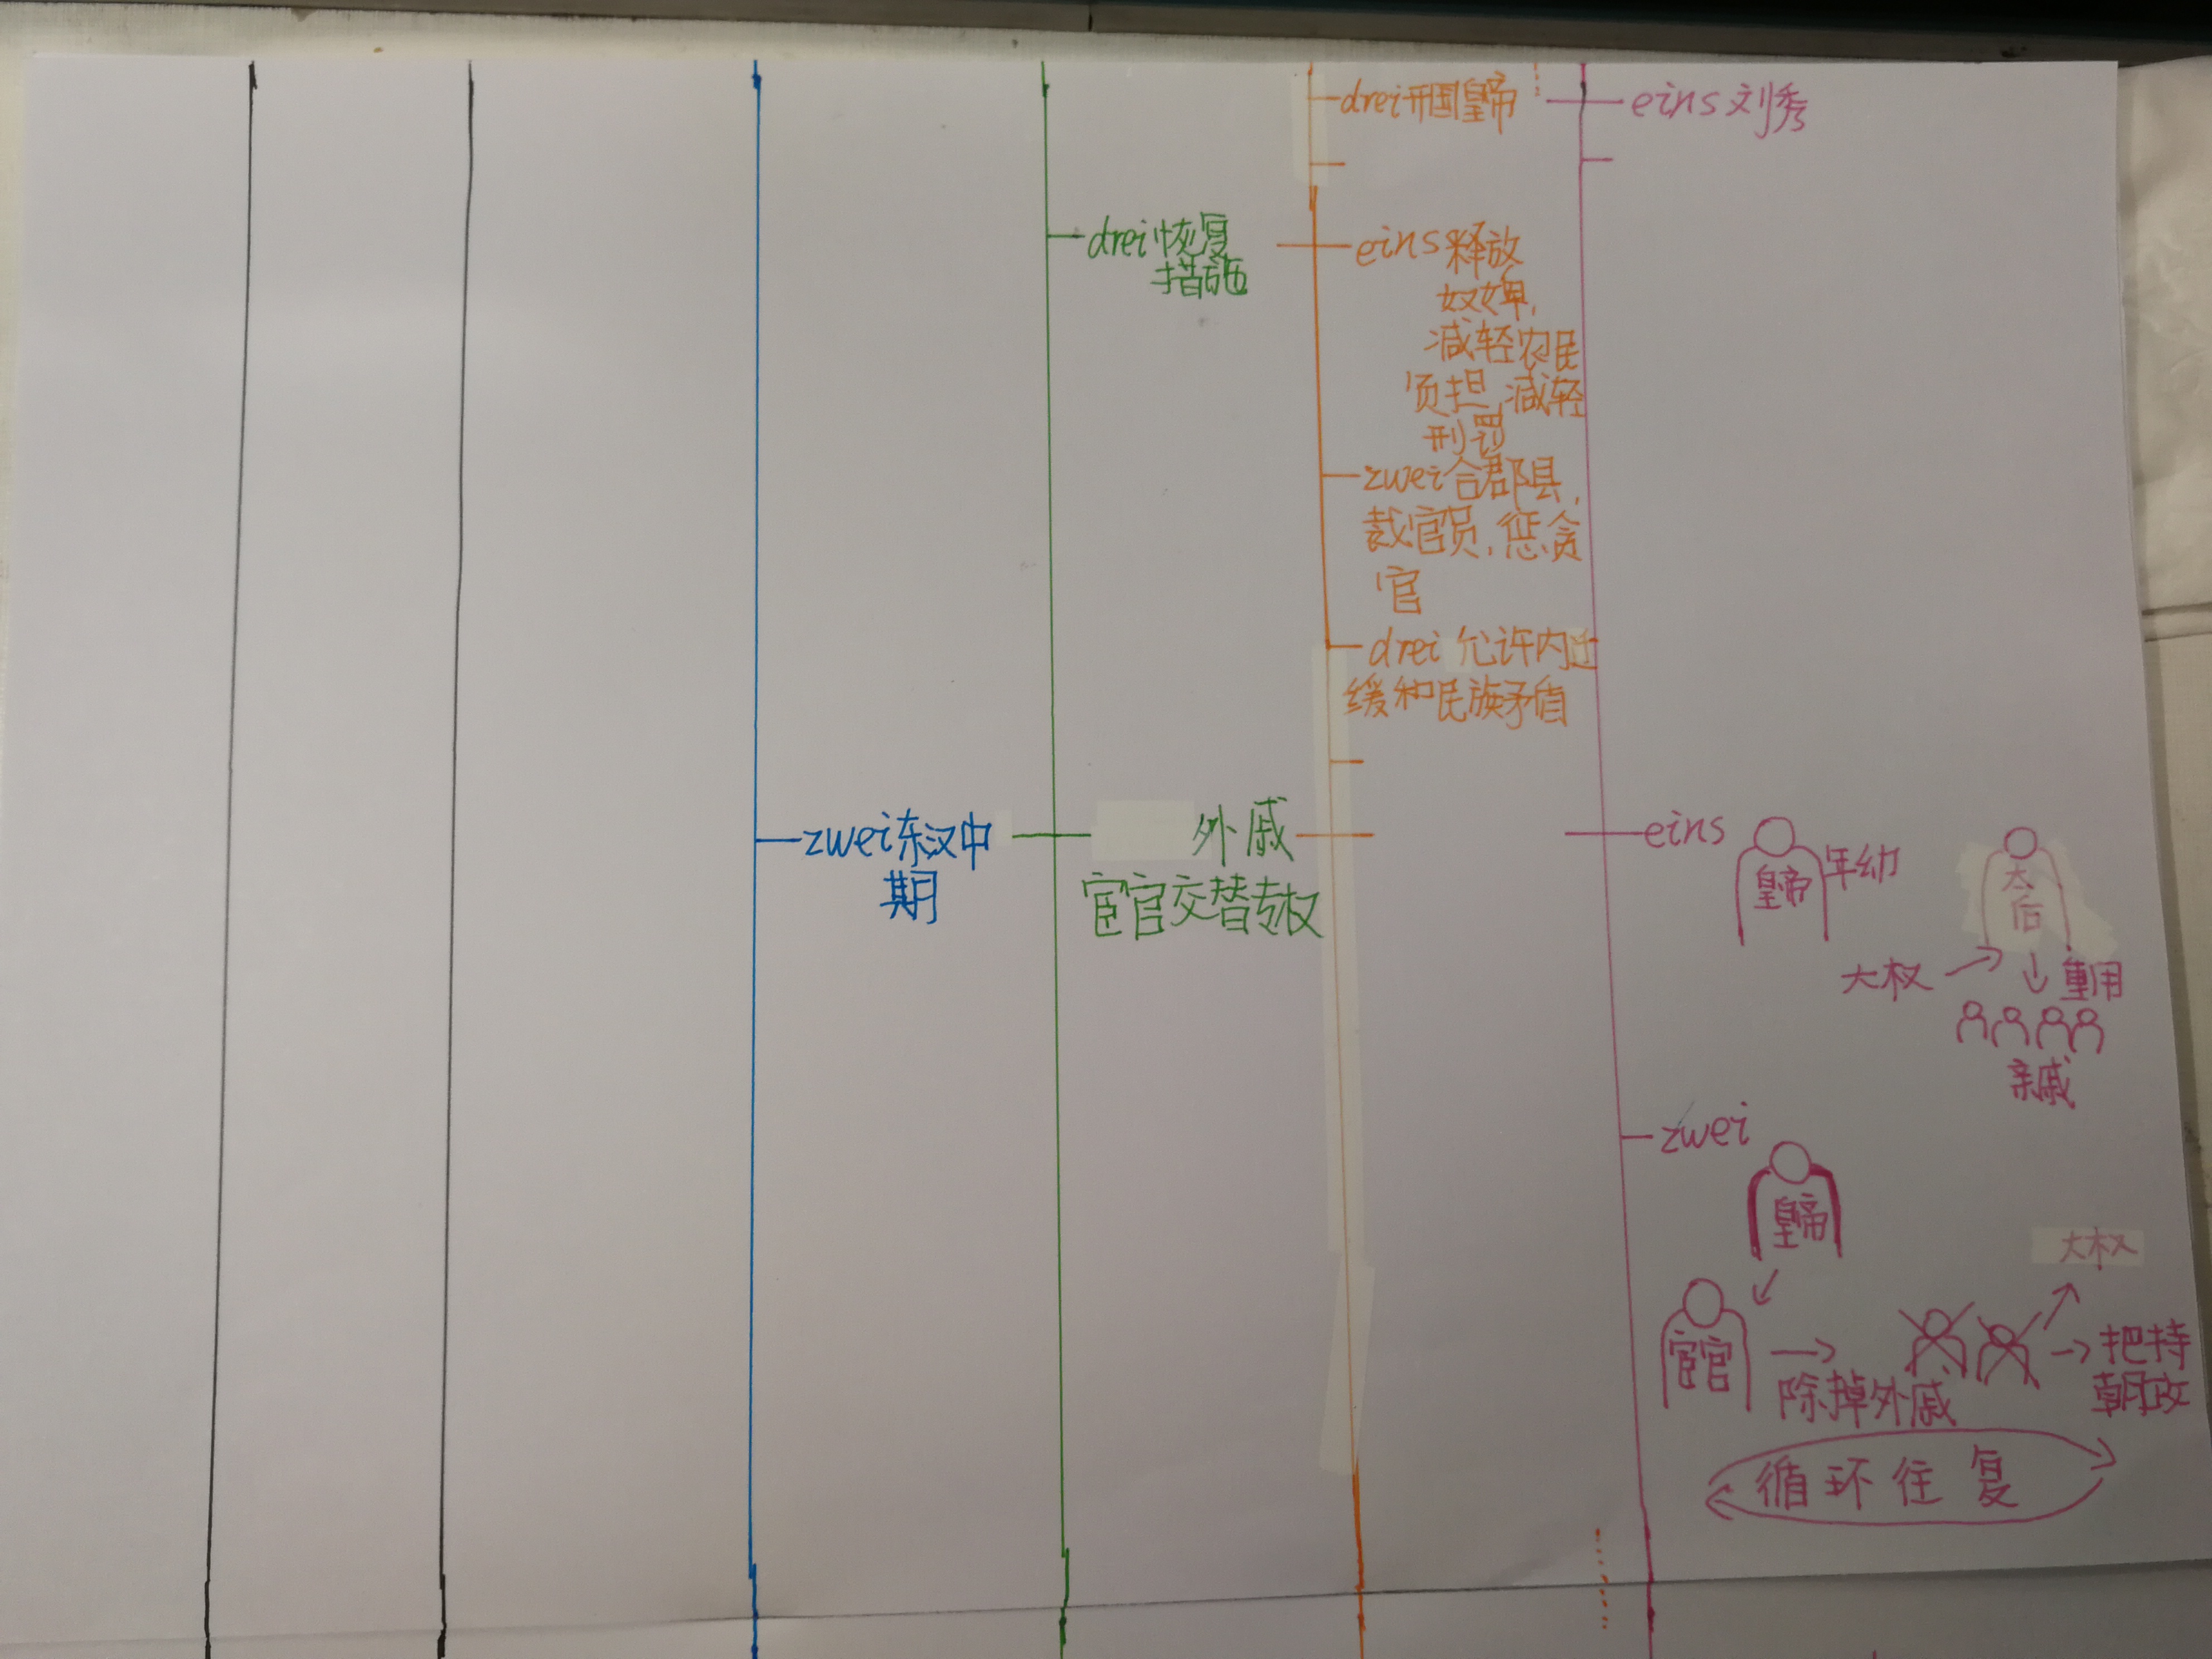 drei开国皇帝
eins刘秀
drei恢复
措施
eins释放
奴婢,
减轻农民
负担,减轻
刑罚
zwei合郡县,
裁官员,惩贪
官
drei允许内迁
缓和民族矛盾
zwei东汉中
期
外戚
宦官交替专权
eins
皇帝
年幼
太后
大权
重用
亲戚
zwei
皇帝
大权
宦官
除掉外戚
把持
朝政
循环往复